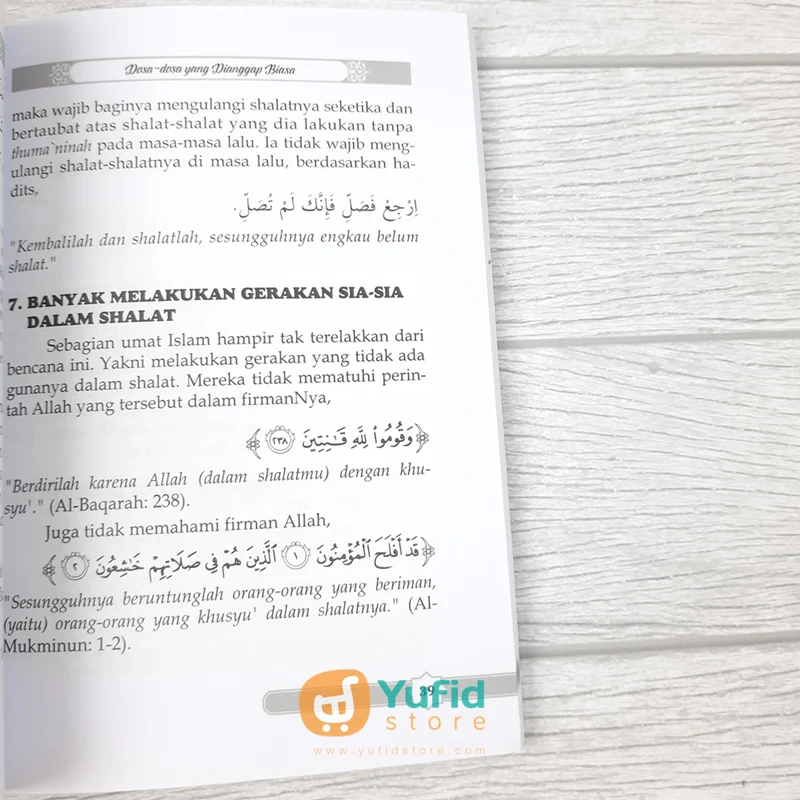 Dosa-dosa yang Dianggap Biasa
maka wajib baginya mengulangi shalatnya seketika dan
bertaubat atas shalat-shalat yang dia lakukan tanpa
thuma`ninah pada masa-masa lalu. Ia tidak wajib meng-
ulangi shalat-shalatnya di masa lalu, berdasarkan ha-
dits,
اِرْجِعْ فَصَلِّ فَإِنَّكَ لَمْ تُصَلِّ.
"Kembalilah dan shalatlah, sesungguhnya engkau belum
shalat."
7. BANYAK MELAKUKAN GERAKAN SIA-SIA
DALAM SHALAT
Sebagian umat Islam hampir tak terelakkan dari
bencana ini. Yakni melakukan gerakan yang tidak ada
gunanya dalam shalat. Mereka tidak mematuhi perin-
tah Allah yang tersebut dalam firmanNya,
﴿ وَقُومُوا۟ لِلَّهِ قَـٰنِتِينَ ٢٣٨ ﴾
"Berdirilah karena Allah (dalam shalatmu) dengan khu-
syu'." (Al-Baqarah: 238).
Juga tidak memahami firman Allah,
﴿ قَدْ أَفْلَحَ ٱلْمُؤْمِنُونَ ١ ٱلَّذِينَ هُمْ فِى صَلَاتِهِمْ خَـٰشِعُونَ ٢ ﴾
"Sesungguhnya beruntunglah orang-orang yang beriman,
(yaitu) orang-orang yang khusyu' dalam shalatnya." (Al-
Mukminun: 1-2).
39
Yufid
store
www.yufidstore.com